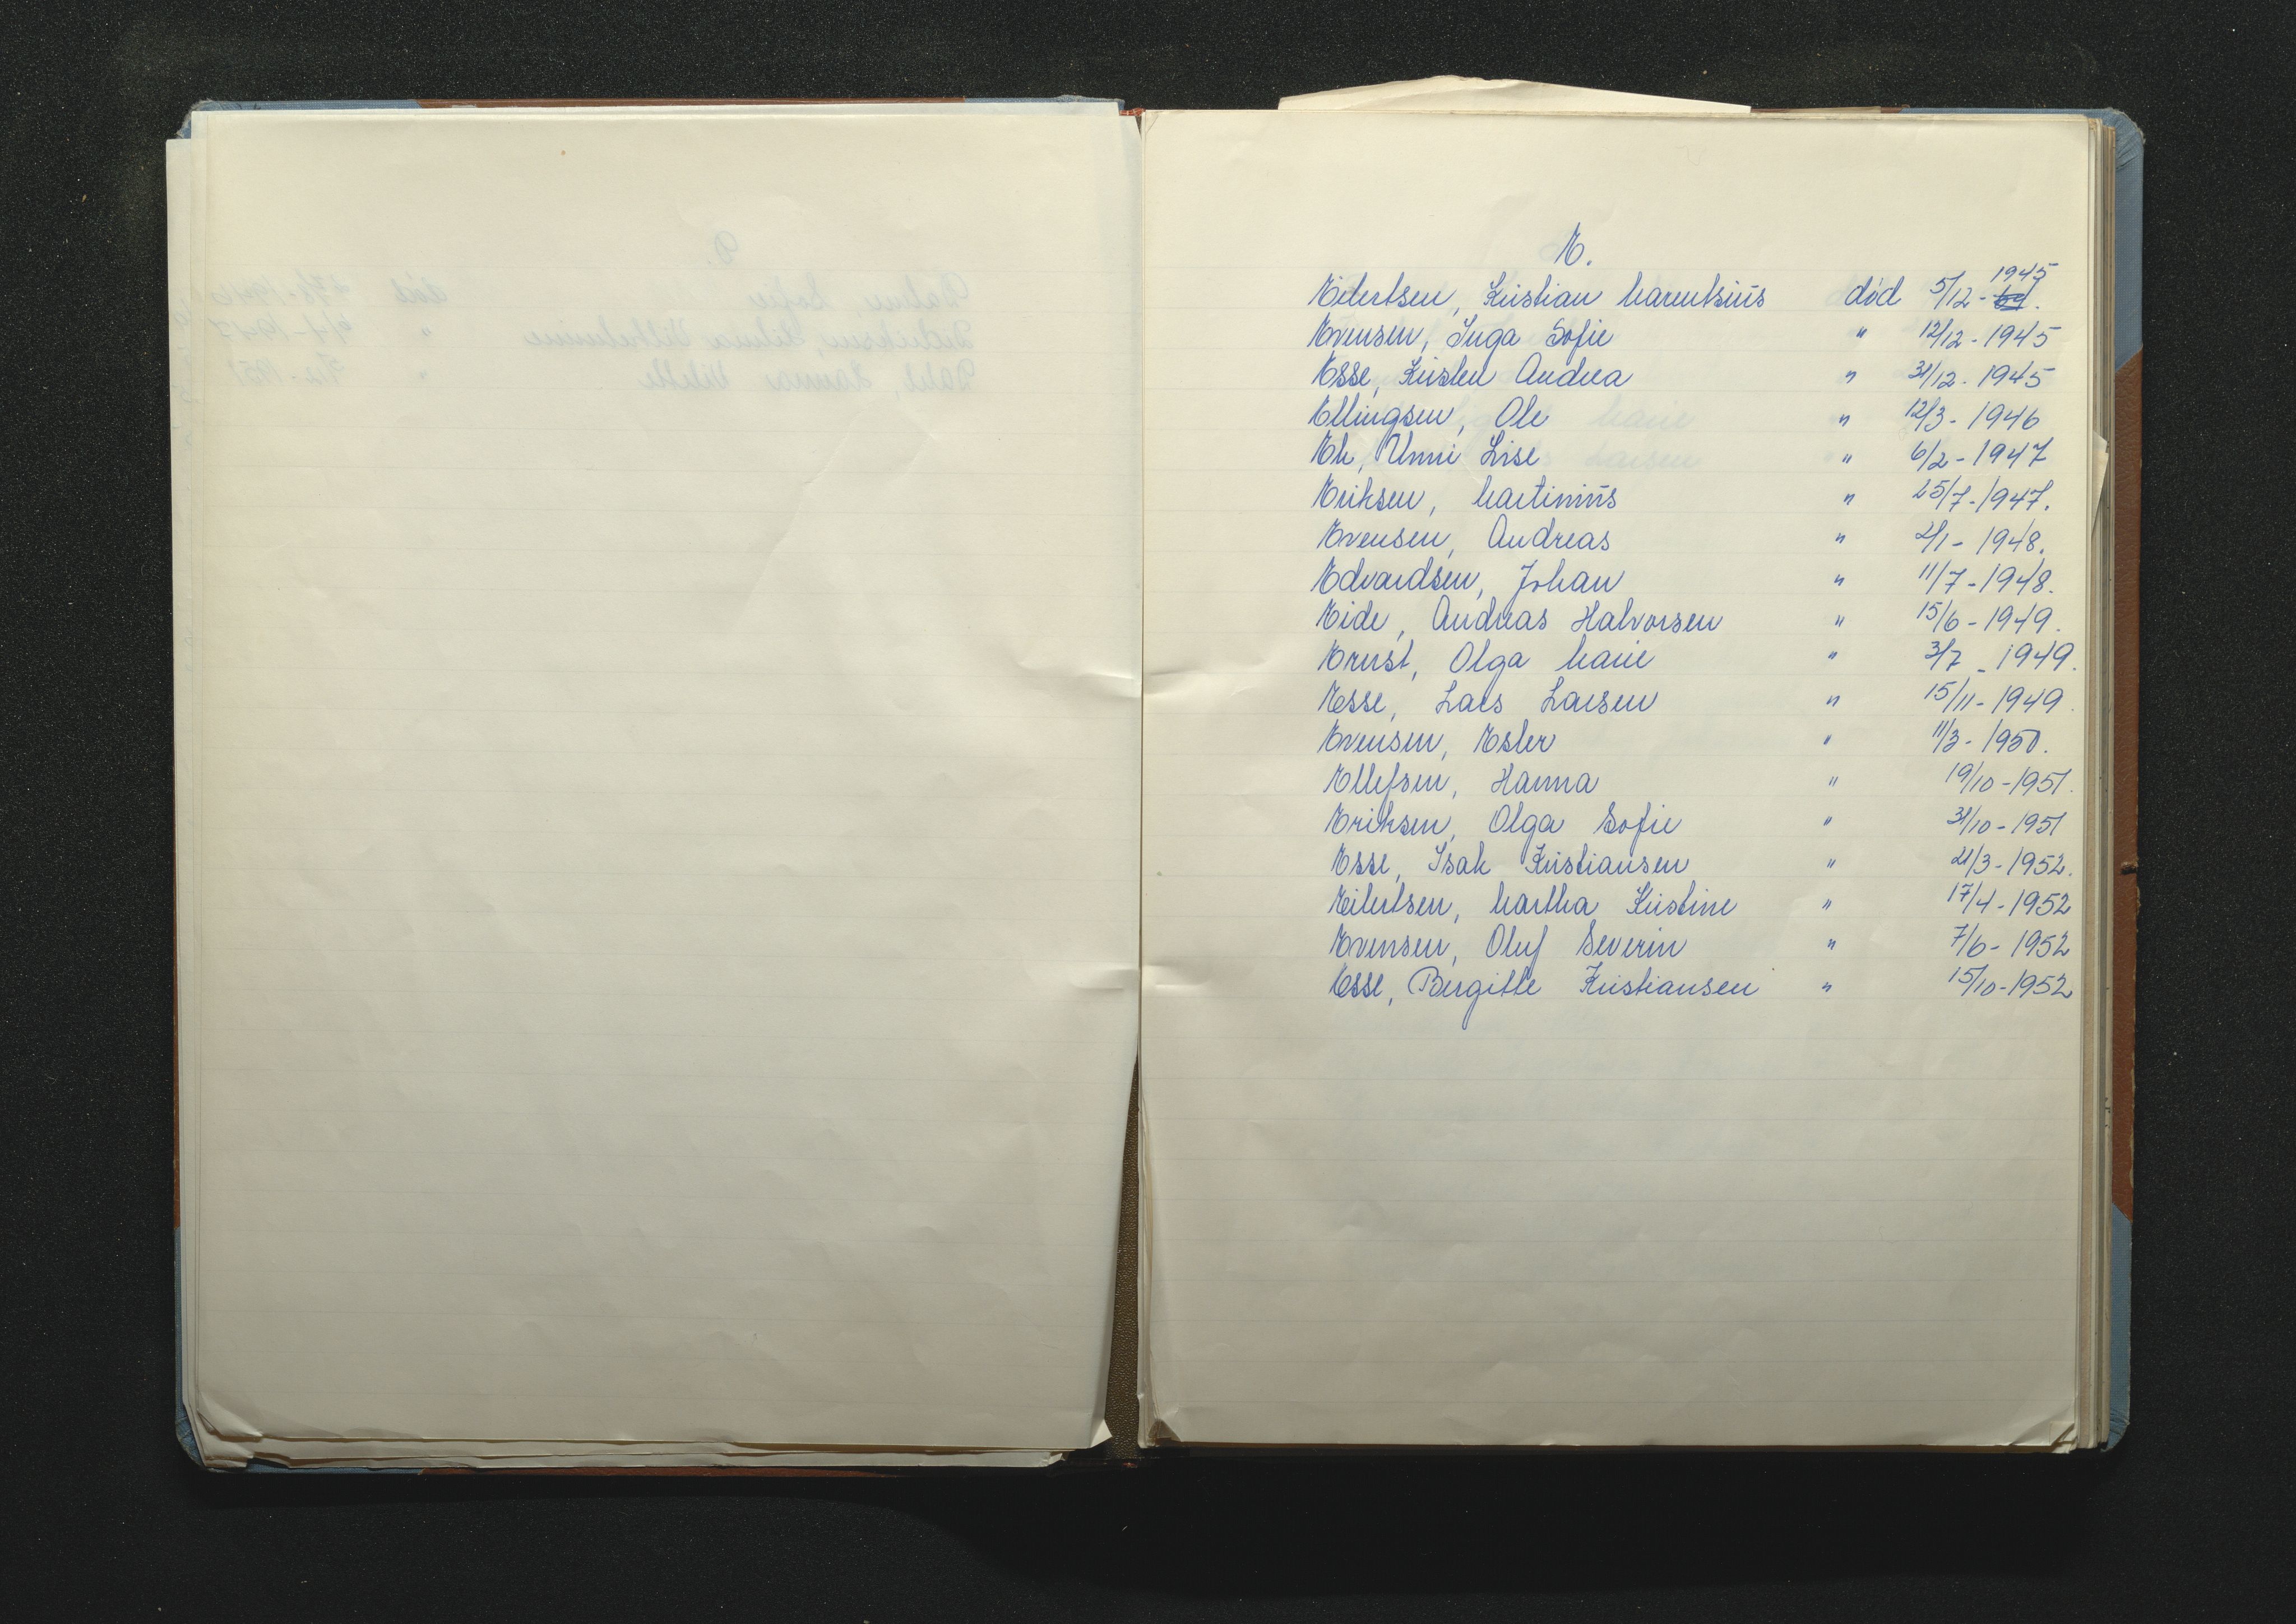 E.
Eilertsen, Kristian Marentsius død 5/12-1945.
Evensen, Inga Sofie " 12/12-1945
Esse, Kirsten Andrea " 31/12-1945
Ellingsen, Ole " 12/3-1946
Ek, Unni Lise " 6/2-1947
Eriksen, Martinius " 25/7-1947.
Evensen, Andreas " 2/1-1948.
Edvardsen, Johan " 11/7-1948.
Eide, Andreas Halvorsen " 15/6-1949.
Ernst, Olga Marie " 3/7-1949.
Esse, Lars Larsen " 15/11-1949.
Evensen, Ester " 11/3-1950.
Ellefsen, Hanna " 19/10-1951.
Eriksen, Olga Sofie " 31/10-1951
Esse, Isak Kristiansen " 21/3-1952.
Eilertsen, Martha Kristine " 17/4-1952
Evensen, Oluf Severin " 7/6-1952
Esse, Bergitte Kristiansen " 15/10-1952